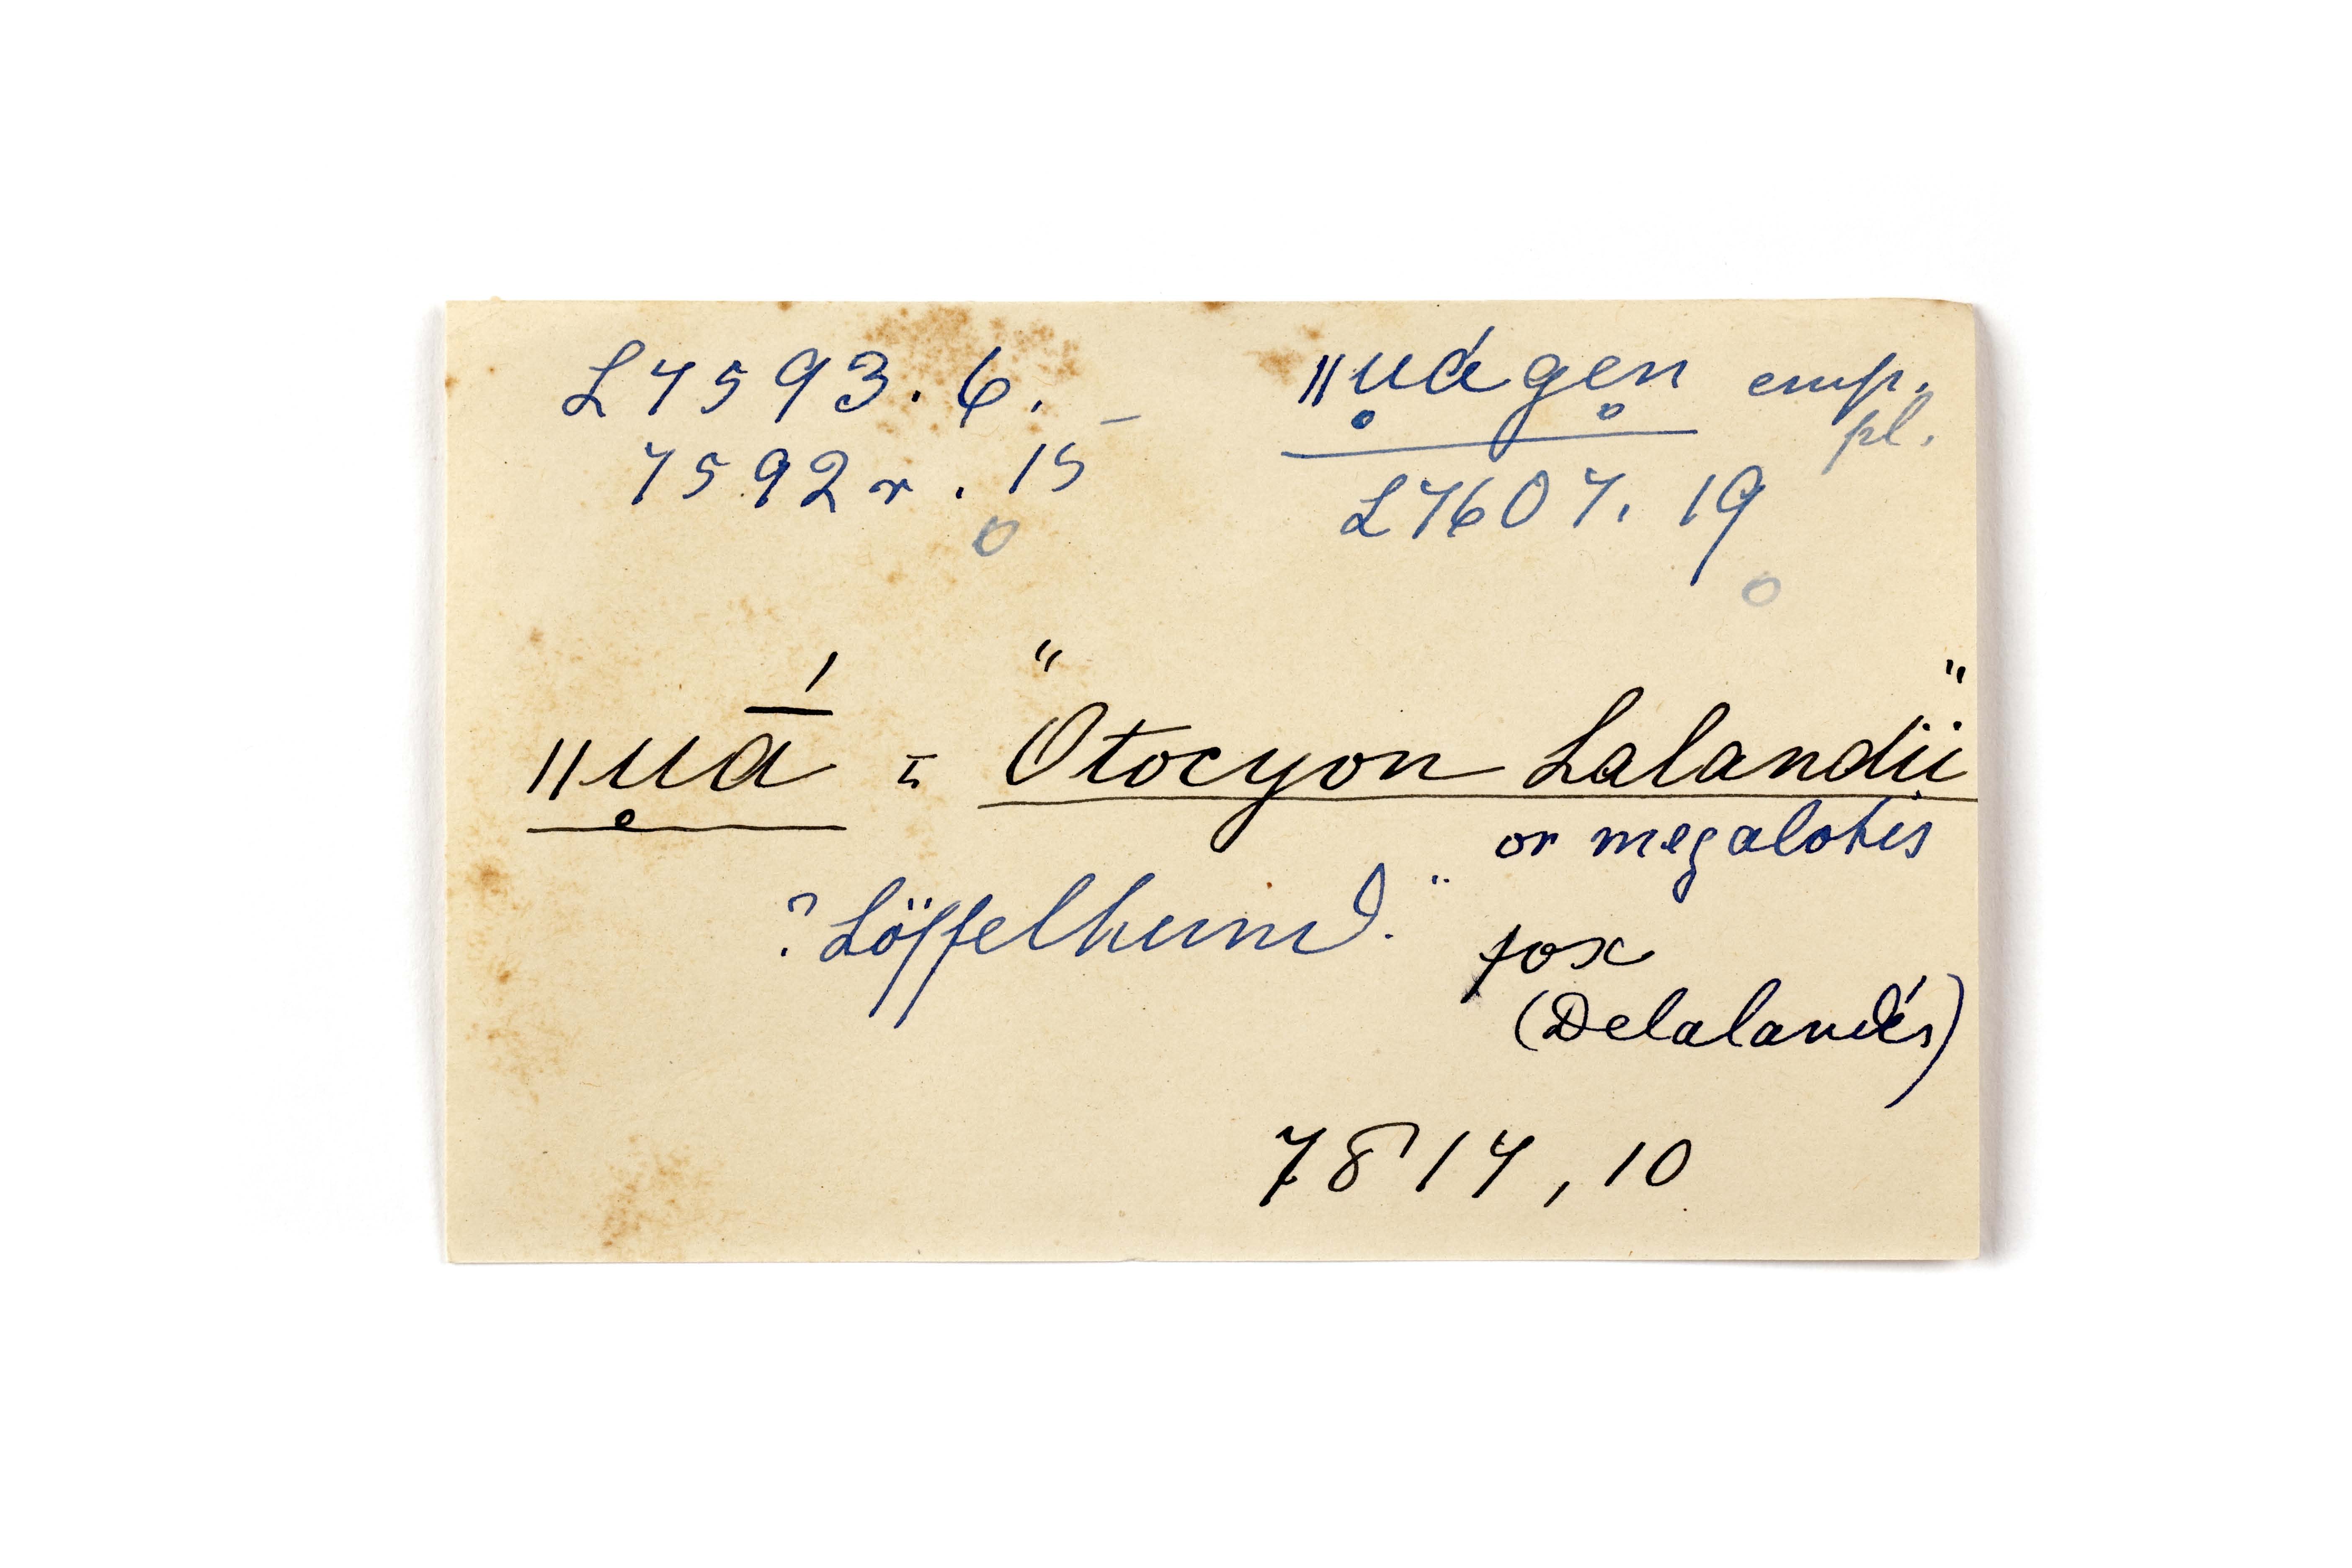 L7593.6.
7592r.15
ǁu̥ágen̥ emp.
pl.
L7607.19
ǁu̥ā́ = "Otocyon Lalandii"
or megalotis
? Löffelhund."
fox
(Delalande's)
7814, 10